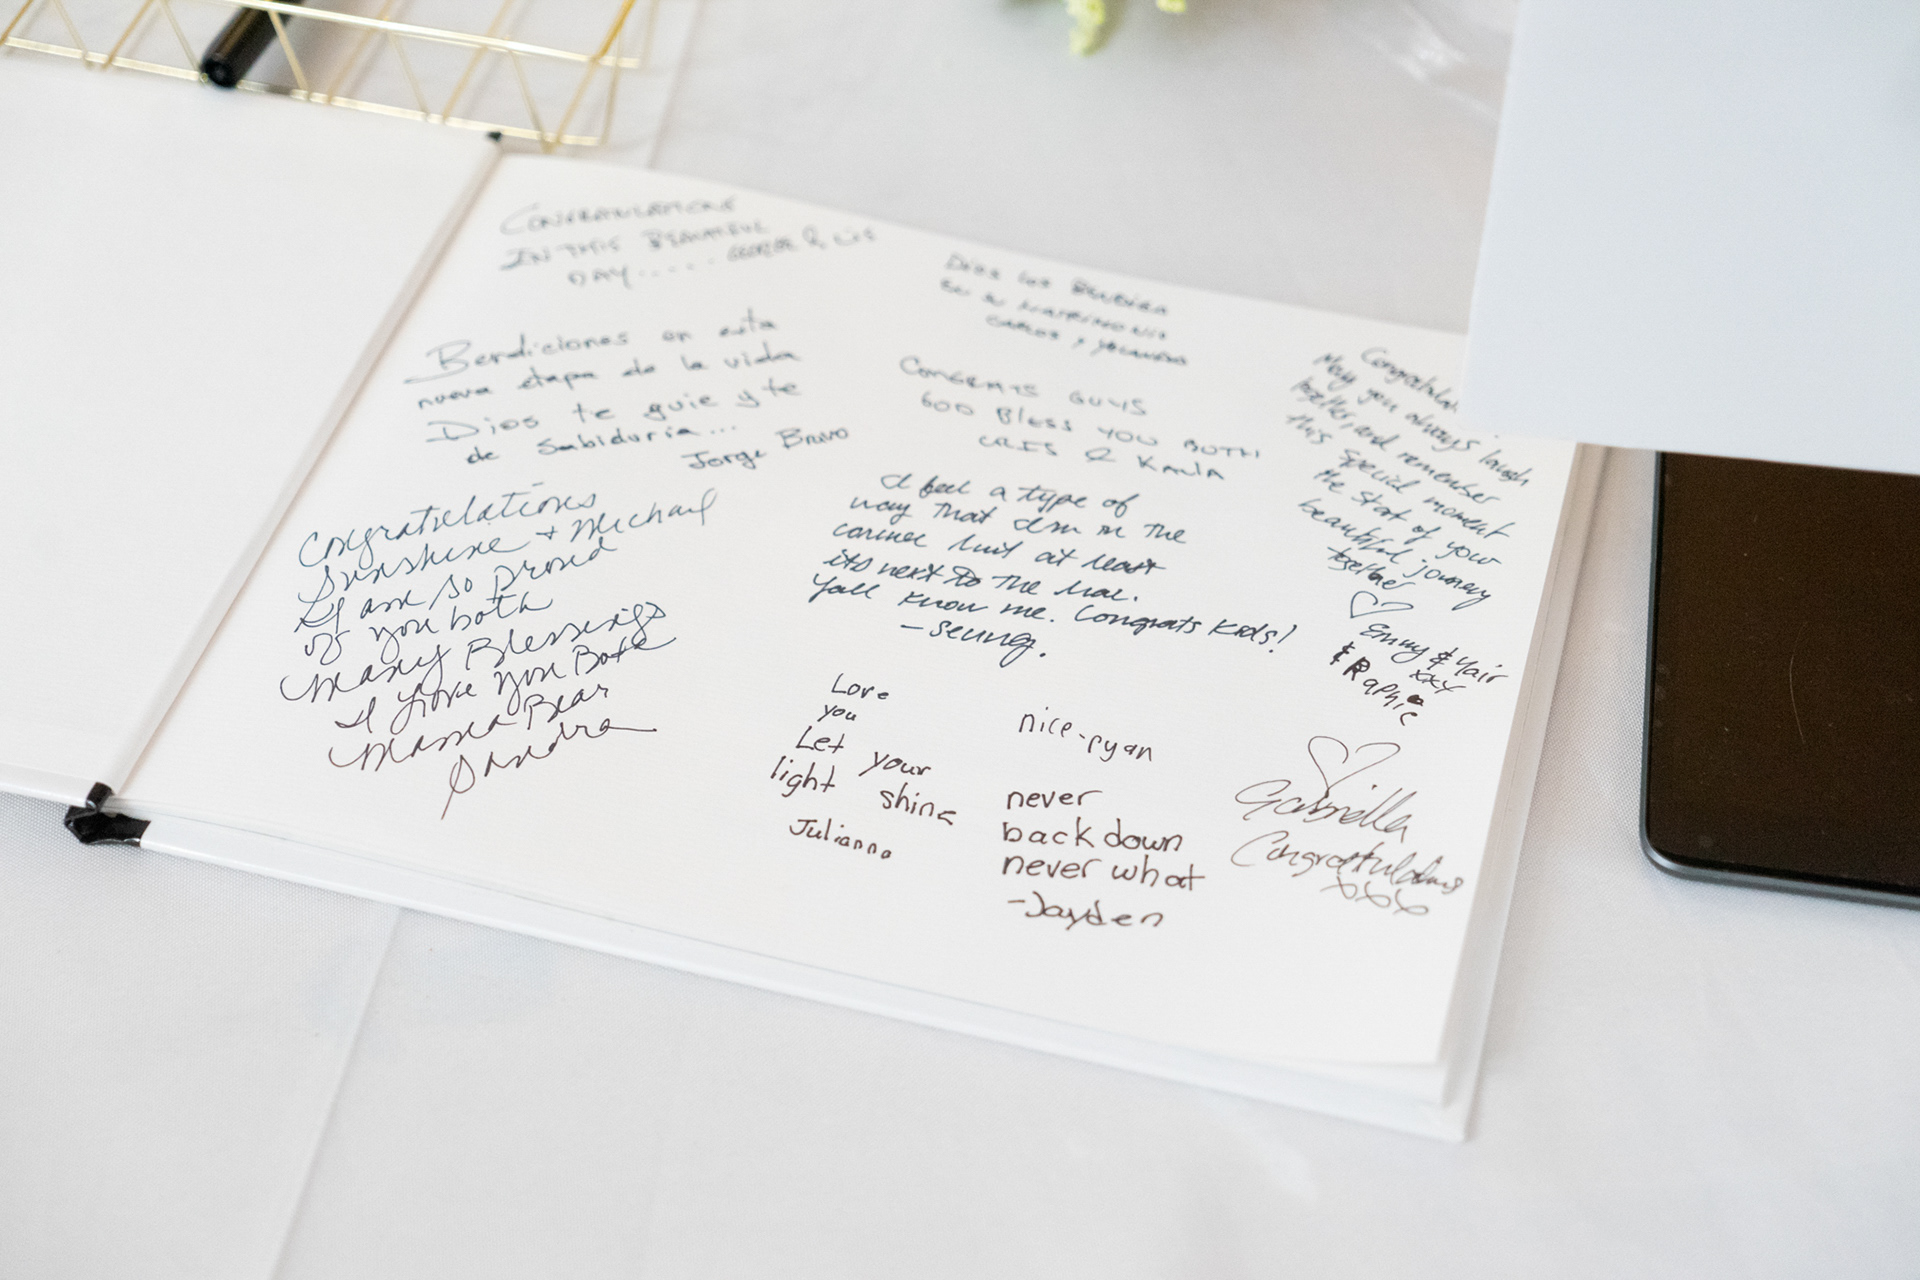 CONGRATULATIONS
IN THIS BEAUTIFUL
DAY..... GEORGE & LIS
Bendiciones en esta
nueva etapa de la vida
Dios te guie y te
de Sabiduria...
Jorge Bravo
Congratulations
Sunshine + Michael
I am so proud
of you both
Many Blessings
I love you Both
Mama Bear
Sandra
Dios los Bendiga
en su Matrimonio
CARLOS y YOLANDA
CONGRATS GUYS
GOD Bless YOU BOTH
CRIS & KAYLA
I feel a type of
way that I'm in the
corner but at least
its next to the bar.
Yall know me. Congrats Kids!
-Seung.
Love
you
Let your
light shine
Julianna
nice-ryan
never
back down
never what
-Jayden
Congratulat
May you always laugh
together, and remember
this special moment
the start of your
beautiful journey
together
Emmy & Yair
xxx
& Raphie
Gabriella
Congratulations
xxx